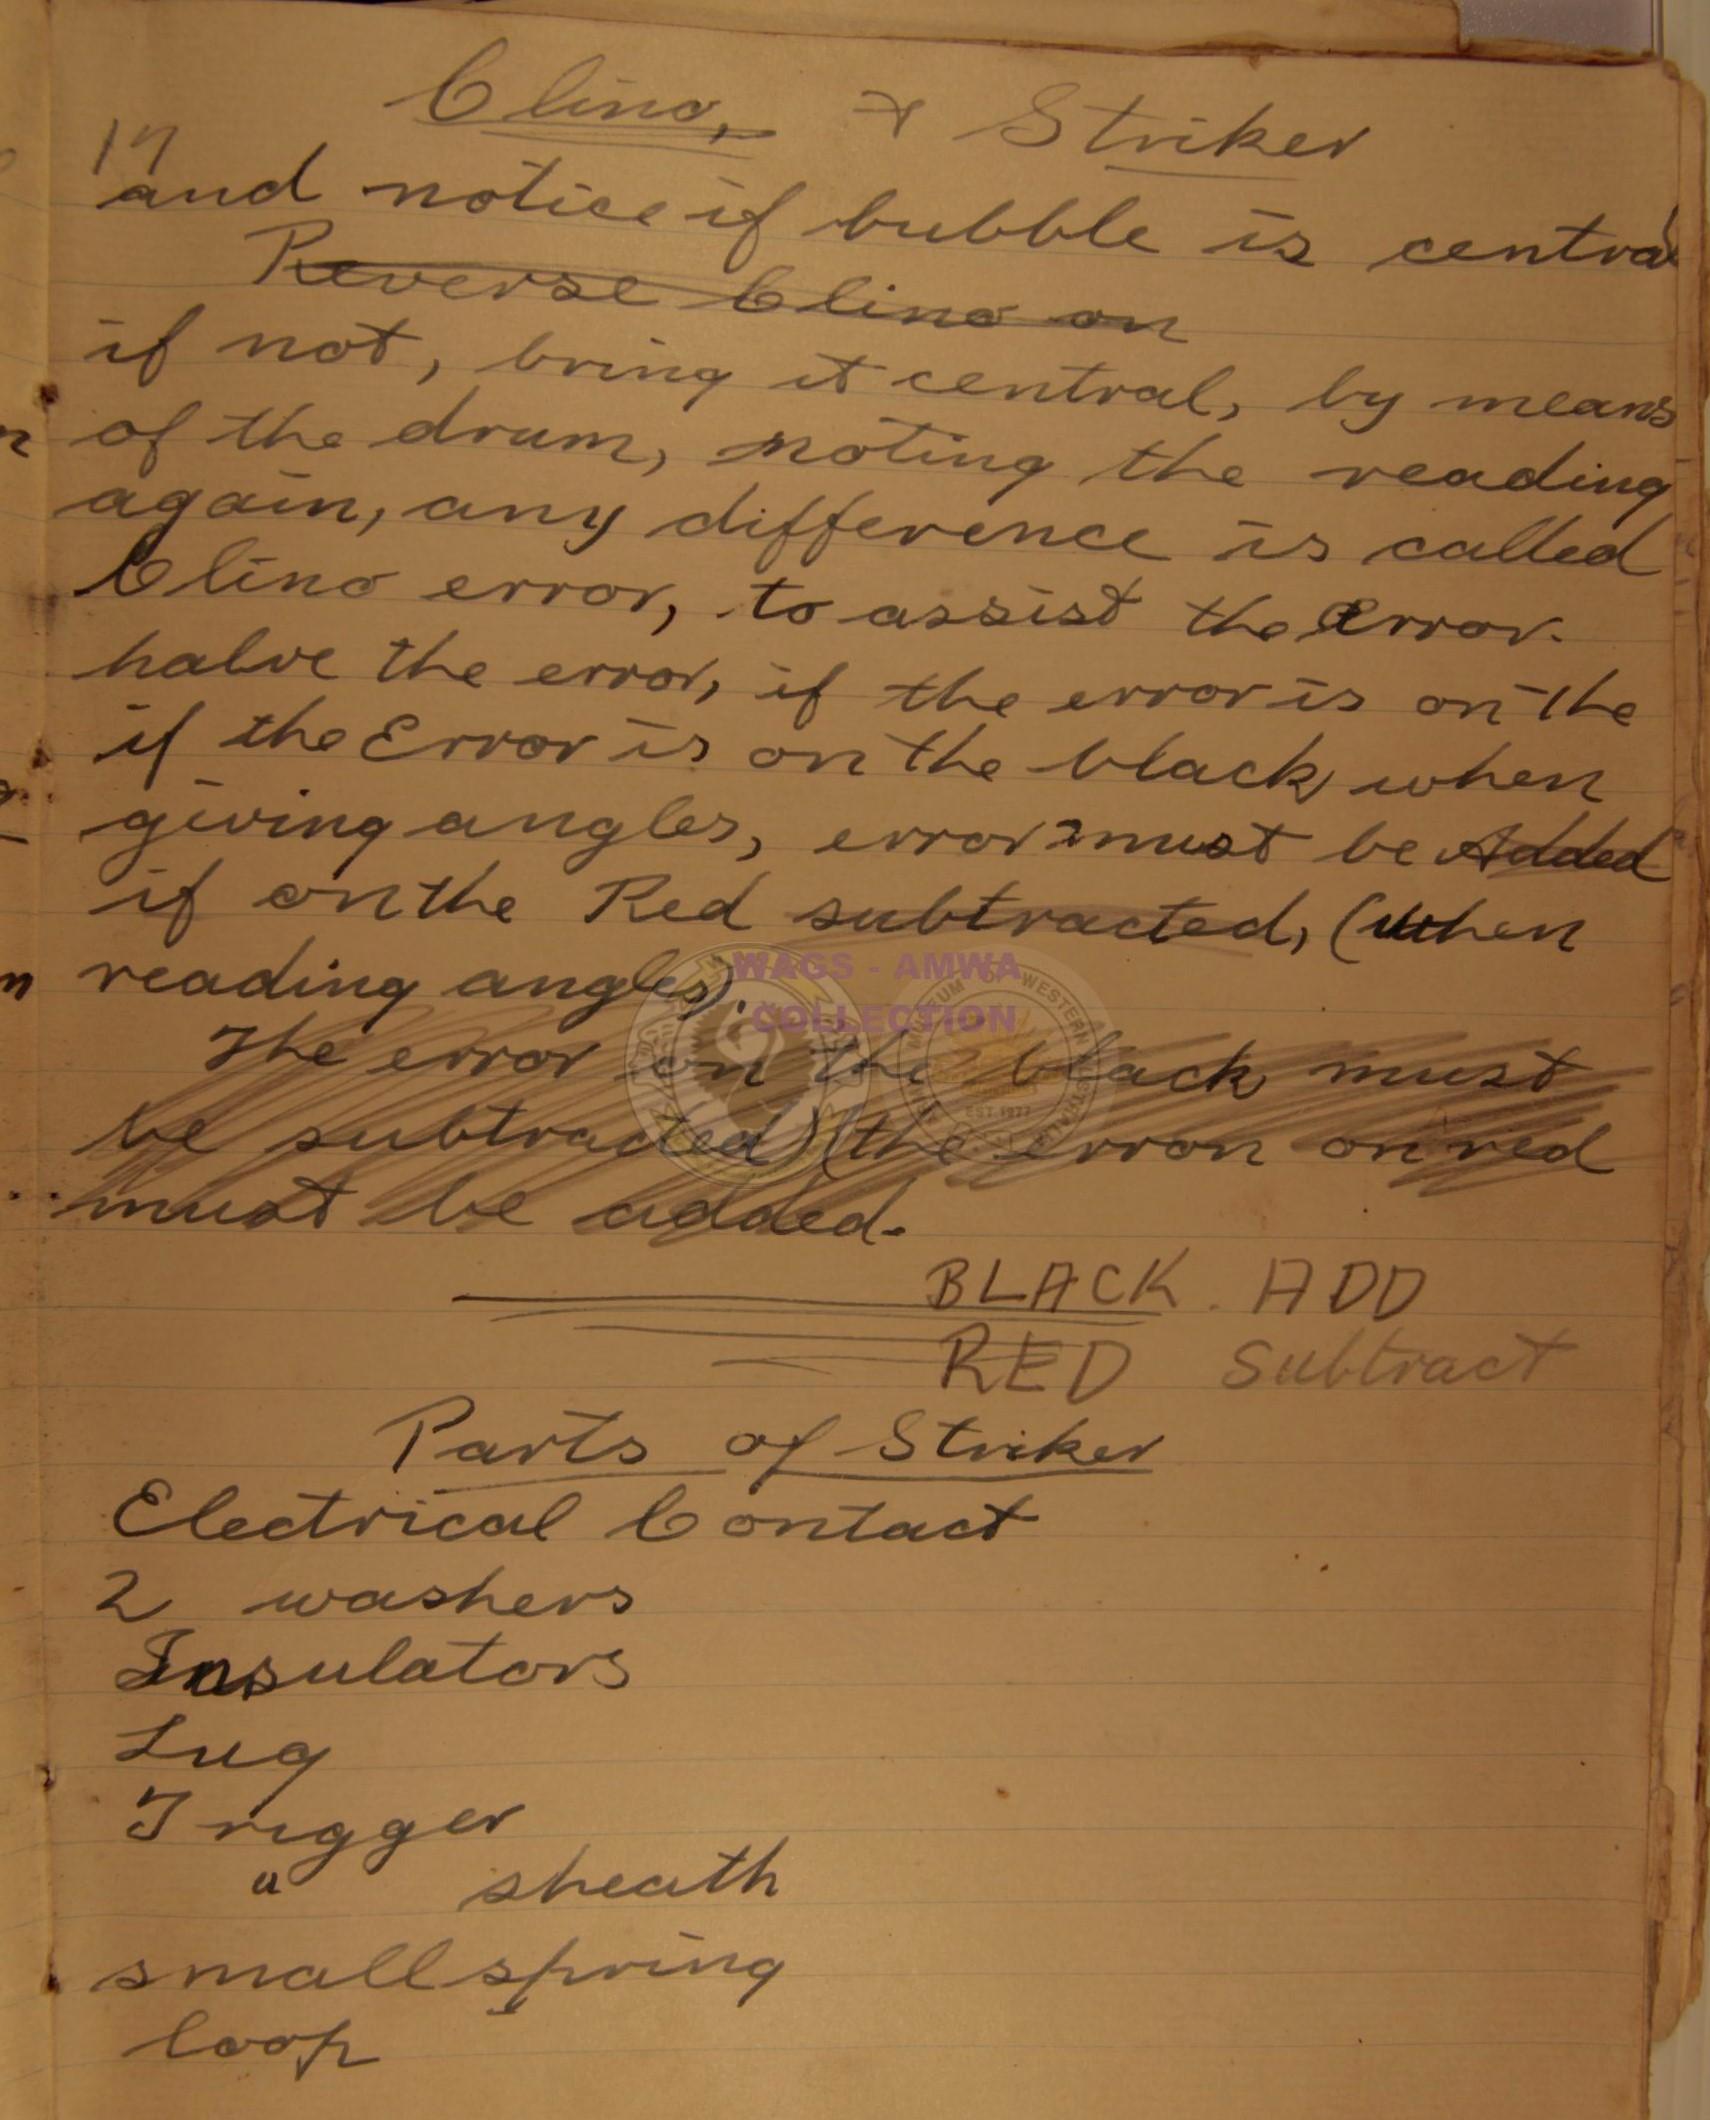 Clino, & Striker
17
and notice if bubble is central
Reverse Clino on
if not, bring it central, by means
of the drum, noting the reading
again, any difference is called
Clino error, to assist the error.
halve the error, if the error is on the
if the Error is on the black, when
giving angles, error must be Added
if on the Red subtracted, (when
reading angles).
WAGS - AMWA
COLLECTION
The error on the black must
be subtracted) (the error on red
must be added.
BLACK. ADD
RED Subtract
Parts of Striker
Electrical Contact
2 washers
Insulators
Lug
Trigger
" sheath
small spring
loop